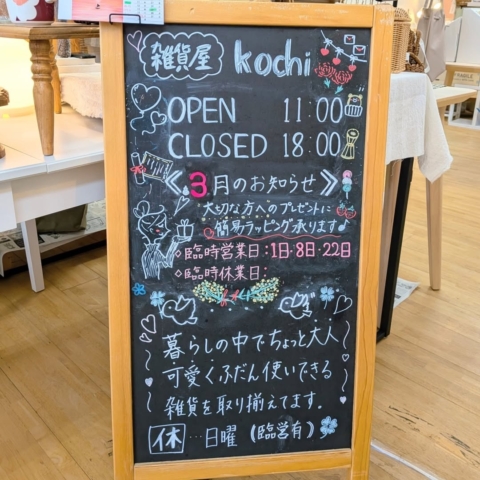 雑貨屋 kochi
OPEN 11:00
CLOSED 18:00
《3月のお知らせ》
大切な方へのプレゼントに
簡易ラッピング承ります♪
◇臨時営業日:1日・8日・22日
◇臨時休業日:
暮らしの中でちょっと大人
可愛くふだん使いできる
雑貨を取り揃えてます。
休…日曜(臨営有)